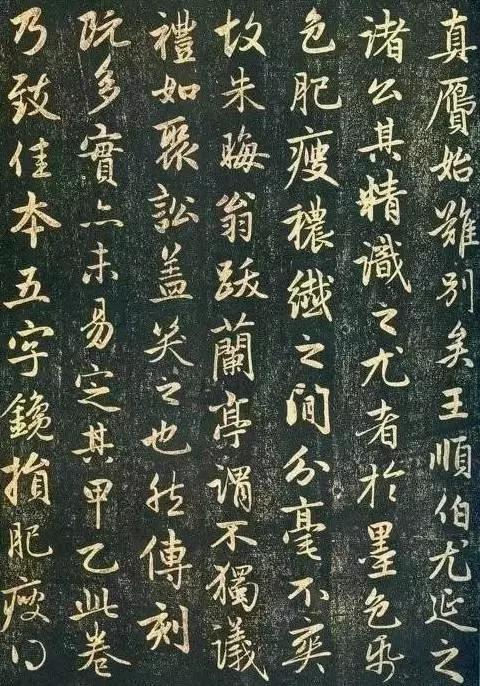 真贗始難別矣王順伯尤延之
諸公其精識之尤者於墨色紙
色肥瘦穠纖之間分毫不爽
故朱晦翁跋蘭亭謂不獨議
禮如聚訟盖笑之也然傳刻
既多實亦未易定其甲乙此卷
乃致佳本五字鑱損肥瘦得